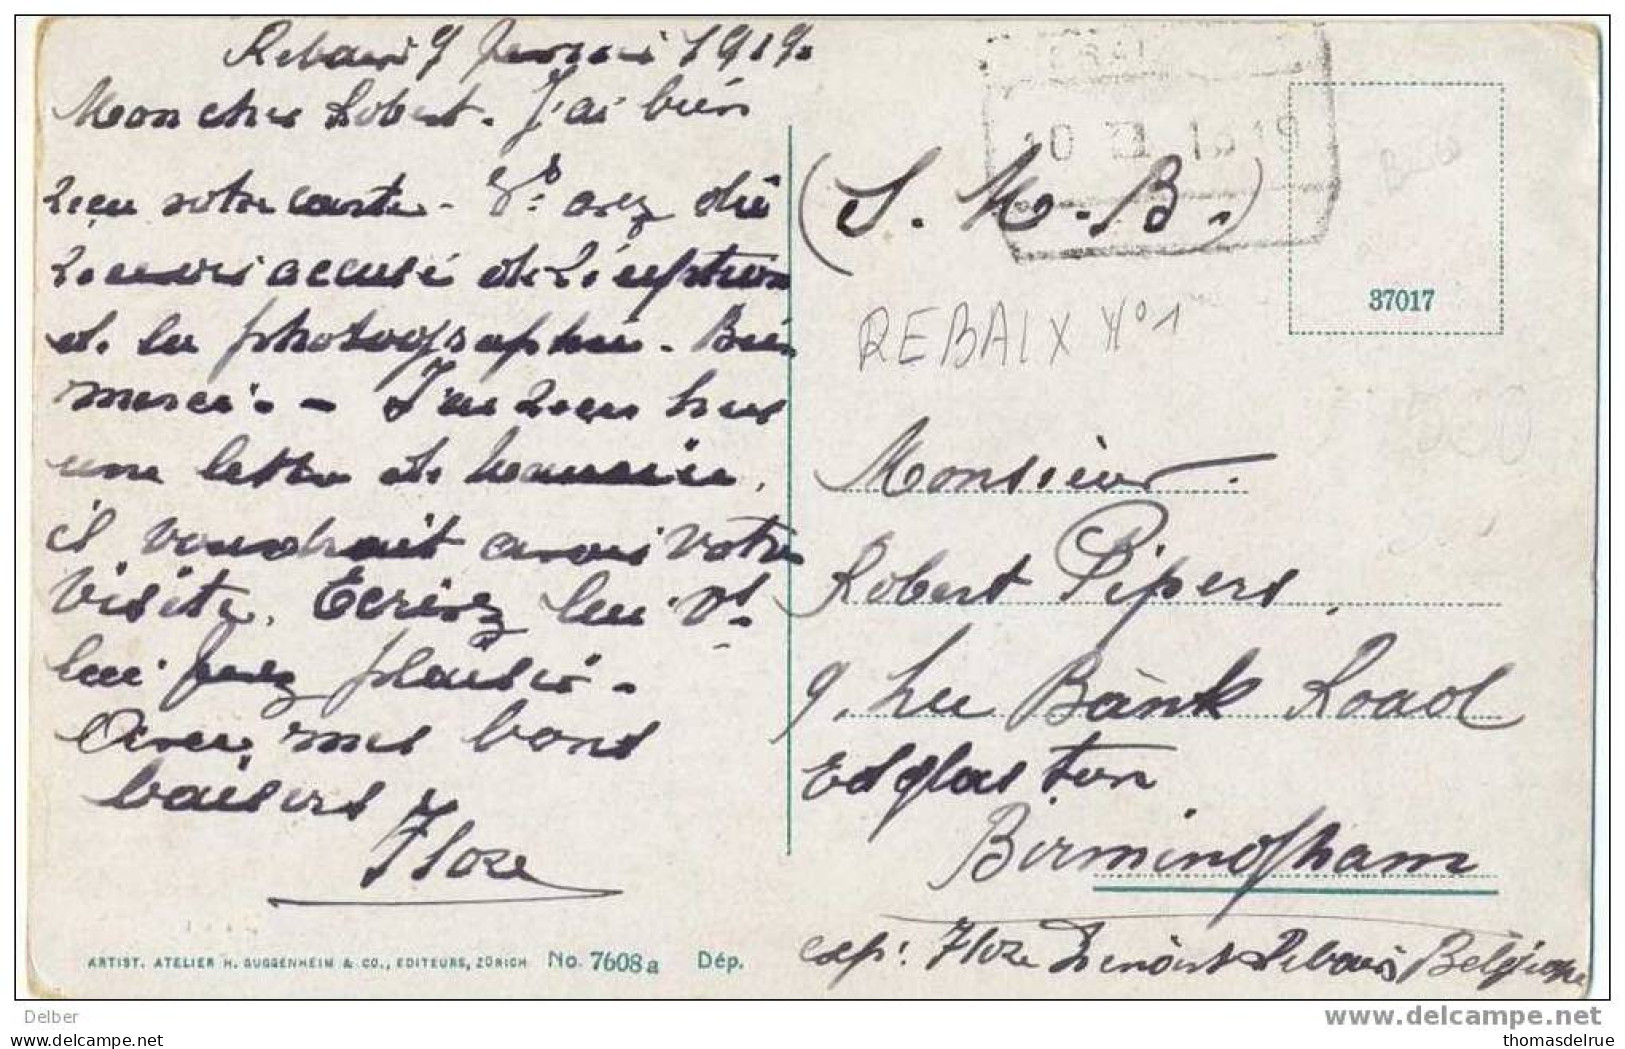 Rebaix 9 1919.
Mon cher Robert. J'ai bien
reçu votre carte - Vs avez dû
recevoir accusé de réception
de la photographie. Bien
merci. - J'ai reçu hier
une lettre de
il voudrait avoir votre
visite. Ecrivez lui vs
lui ferez plaisir.
Avec mes bons
baisers
Flore
ARTIST. ATELIER H. GUGGENHEIM & CO., EDITEURS, ZÜRICH No. 7608a Dép.
10 II 1919
(S. M. B.)
37017
REBAIX N°1
500
Monsieur.
Robert Pipers.
9, Lee Bank Road
Edgbaston
Birmingham
exp: Flore Rebaix Belgique
Delber
www.delcampe.net
thomasdelrue